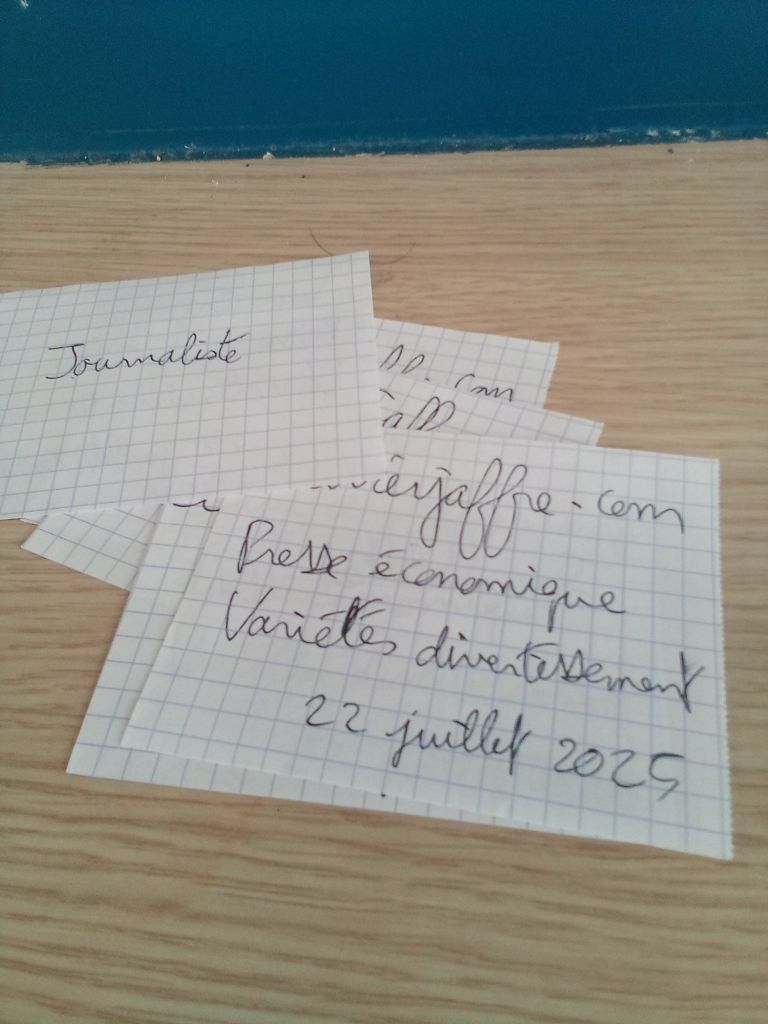 Journaliste
.com
ierjaffre.com
Presse économique
Variétés divertissement
22 juillet 2025